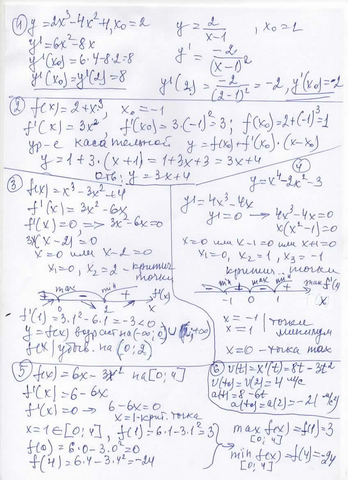 ① y=2x³-4x²+1, x₀=2
y'=6x²-8x
y'(x₀)=6·4-8·2=8
y'(x₀)=y'(2)=8
y=2/(x-1), x₀=1
y'=-2/(x-1)²
y'(2)=-2/(2-1)²=-2, y'(x₀)=-2
② f(x)=2+x³, x₀=-1
f'(x)=3x², f'(x₀)=3·(-1)²=3; f(x₀)=2+(-1)³=1
ур-е касательной y=f(x₀)+f'(x₀)·(x-x₀)
y=1+3·(x+1)=1+3x+3=3x+4
Отв: y=3x+4
③ f(x)=x³-3x²+4
f'(x)=3x²-6x
f'(x)=0, => 3x²-6x=0
3x(x-2)=0
x=0 или x-2=0
x₁=0, x₂=2 - критич. точки
+ max - min + f'(x)
0 2 x
f'(1)=3·1²-6·1=-3<0
y=f(x) возраст на(-∞;0)∪(2;+∞)
f(x) убыв. на (0;2)
④ y=x⁴-2x²-3
y'=4x³-4x
y'=0 → 4x³-4x=0
x(x²-1)=0
x=0 или x-1=0 или x+1=0
x₁=0, x₂=1, x₃=-1
критич. точки
- min + max - min + f'(x)
-1 0 1 x
x=-1
x=1 | точки минимум
x=0 - точка max
⑤ f(x)=6x-3x² на[0;4]
f'(x)=6-6x
f'(x)=0 → 6-6x=0
x=1-крит.точка
x=1∈[0;4], f(1)=6·1-3·1²=3
f(0)=6·0-3·0²=0
f(4)=6·4-3·4²=-24
max f(x)=f(1)=3
[0;4]
min f(x)=f(4)=-24
[0;4]
⑥ v(t)=x'(t)=8t-3t²
v(t₀)=v(2)=4 м/с
a(t)=8-6t